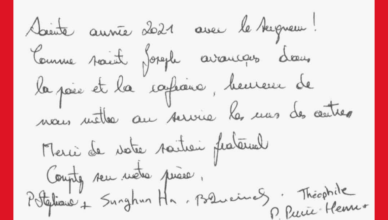 Sainte année 2021 avec le Seigneur !
Comme saint Joseph avançons dans
la paix et la confiance, heureux de
nous mettre au service les uns des autres.
Merci de votre soutien fraternel
Comptez sur notre prière,
P. Stéphane + Sunghun Ha . . Théophile
P. Pierre-Henri +